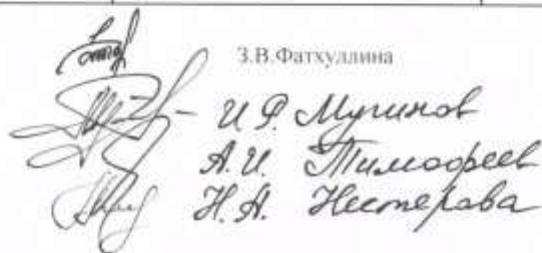 З.В.Фатхуллина
И.Ф. Мугинов
А.И. Тимофеев
Н.А. Нестерова